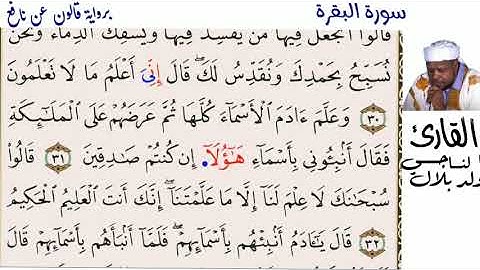 سورة البقرة
برواية قالون عن نافع
قَالُوٓاْ أَتَجْعَلُ فِيهَا مَنْ يُّفْسِدُ فِيهَا وَيَسْفِكُ الدِّمَآءَ وَنَحْنُ
نُسَبِّحُ بِحَمْدِكَ وَنُقَدِّسُ لَكَ قَالَ إِنِّيَ أَعْلَمُ مَا لَا تَعْلَمُونَ
٣٠ وَعَلَّمَ ءَادَمَ اَلْأَسْمَآءَ كُلَّهَا ثُمَّ عَرَضَهُمْ عَلَى اَلْمَلَٰٓئِكَةِ
فَقَالَ أَنۢبِـُٔونِي بِأَسْمَآءِ هَٰٓؤُلَآ إِن كُنتُمْ صَٰدِقِينَ ٣١ قَالُواْ
سُبْحَٰنَكَ لَا عِلْمَ لَنَآ إِلَّا مَا عَلَّمْتَنَآ إِنَّكَ أَنتَ اَلْعَلِيمُ اَلْحَكِيمُ
٣٢ قَالَ يَٰٓـَٔادَمُ أَنۢبِئْهُم بِأَسْمَآئِهِمْ فَلَمَّآ أَنۢبَأَهُم بِأَسْمَآئِهِمْ قَالَ
القارئ
الناجي
ولد بلال